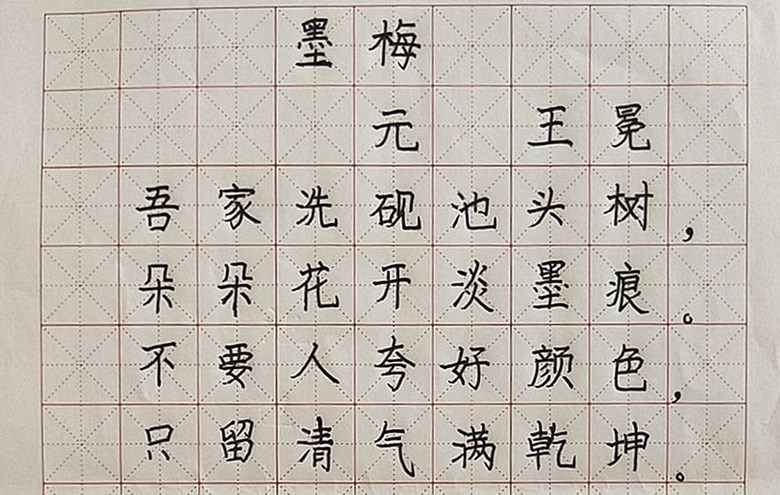 墨梅
元 王冕
吾家洗砚池头树，
朵朵花开淡墨痕。
不要人夸好颜色，
只留清气满乾坤。